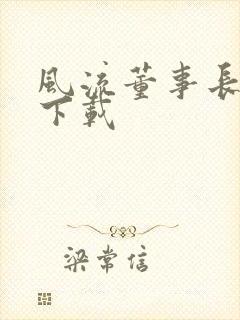 風流董事長
下載
梁常信